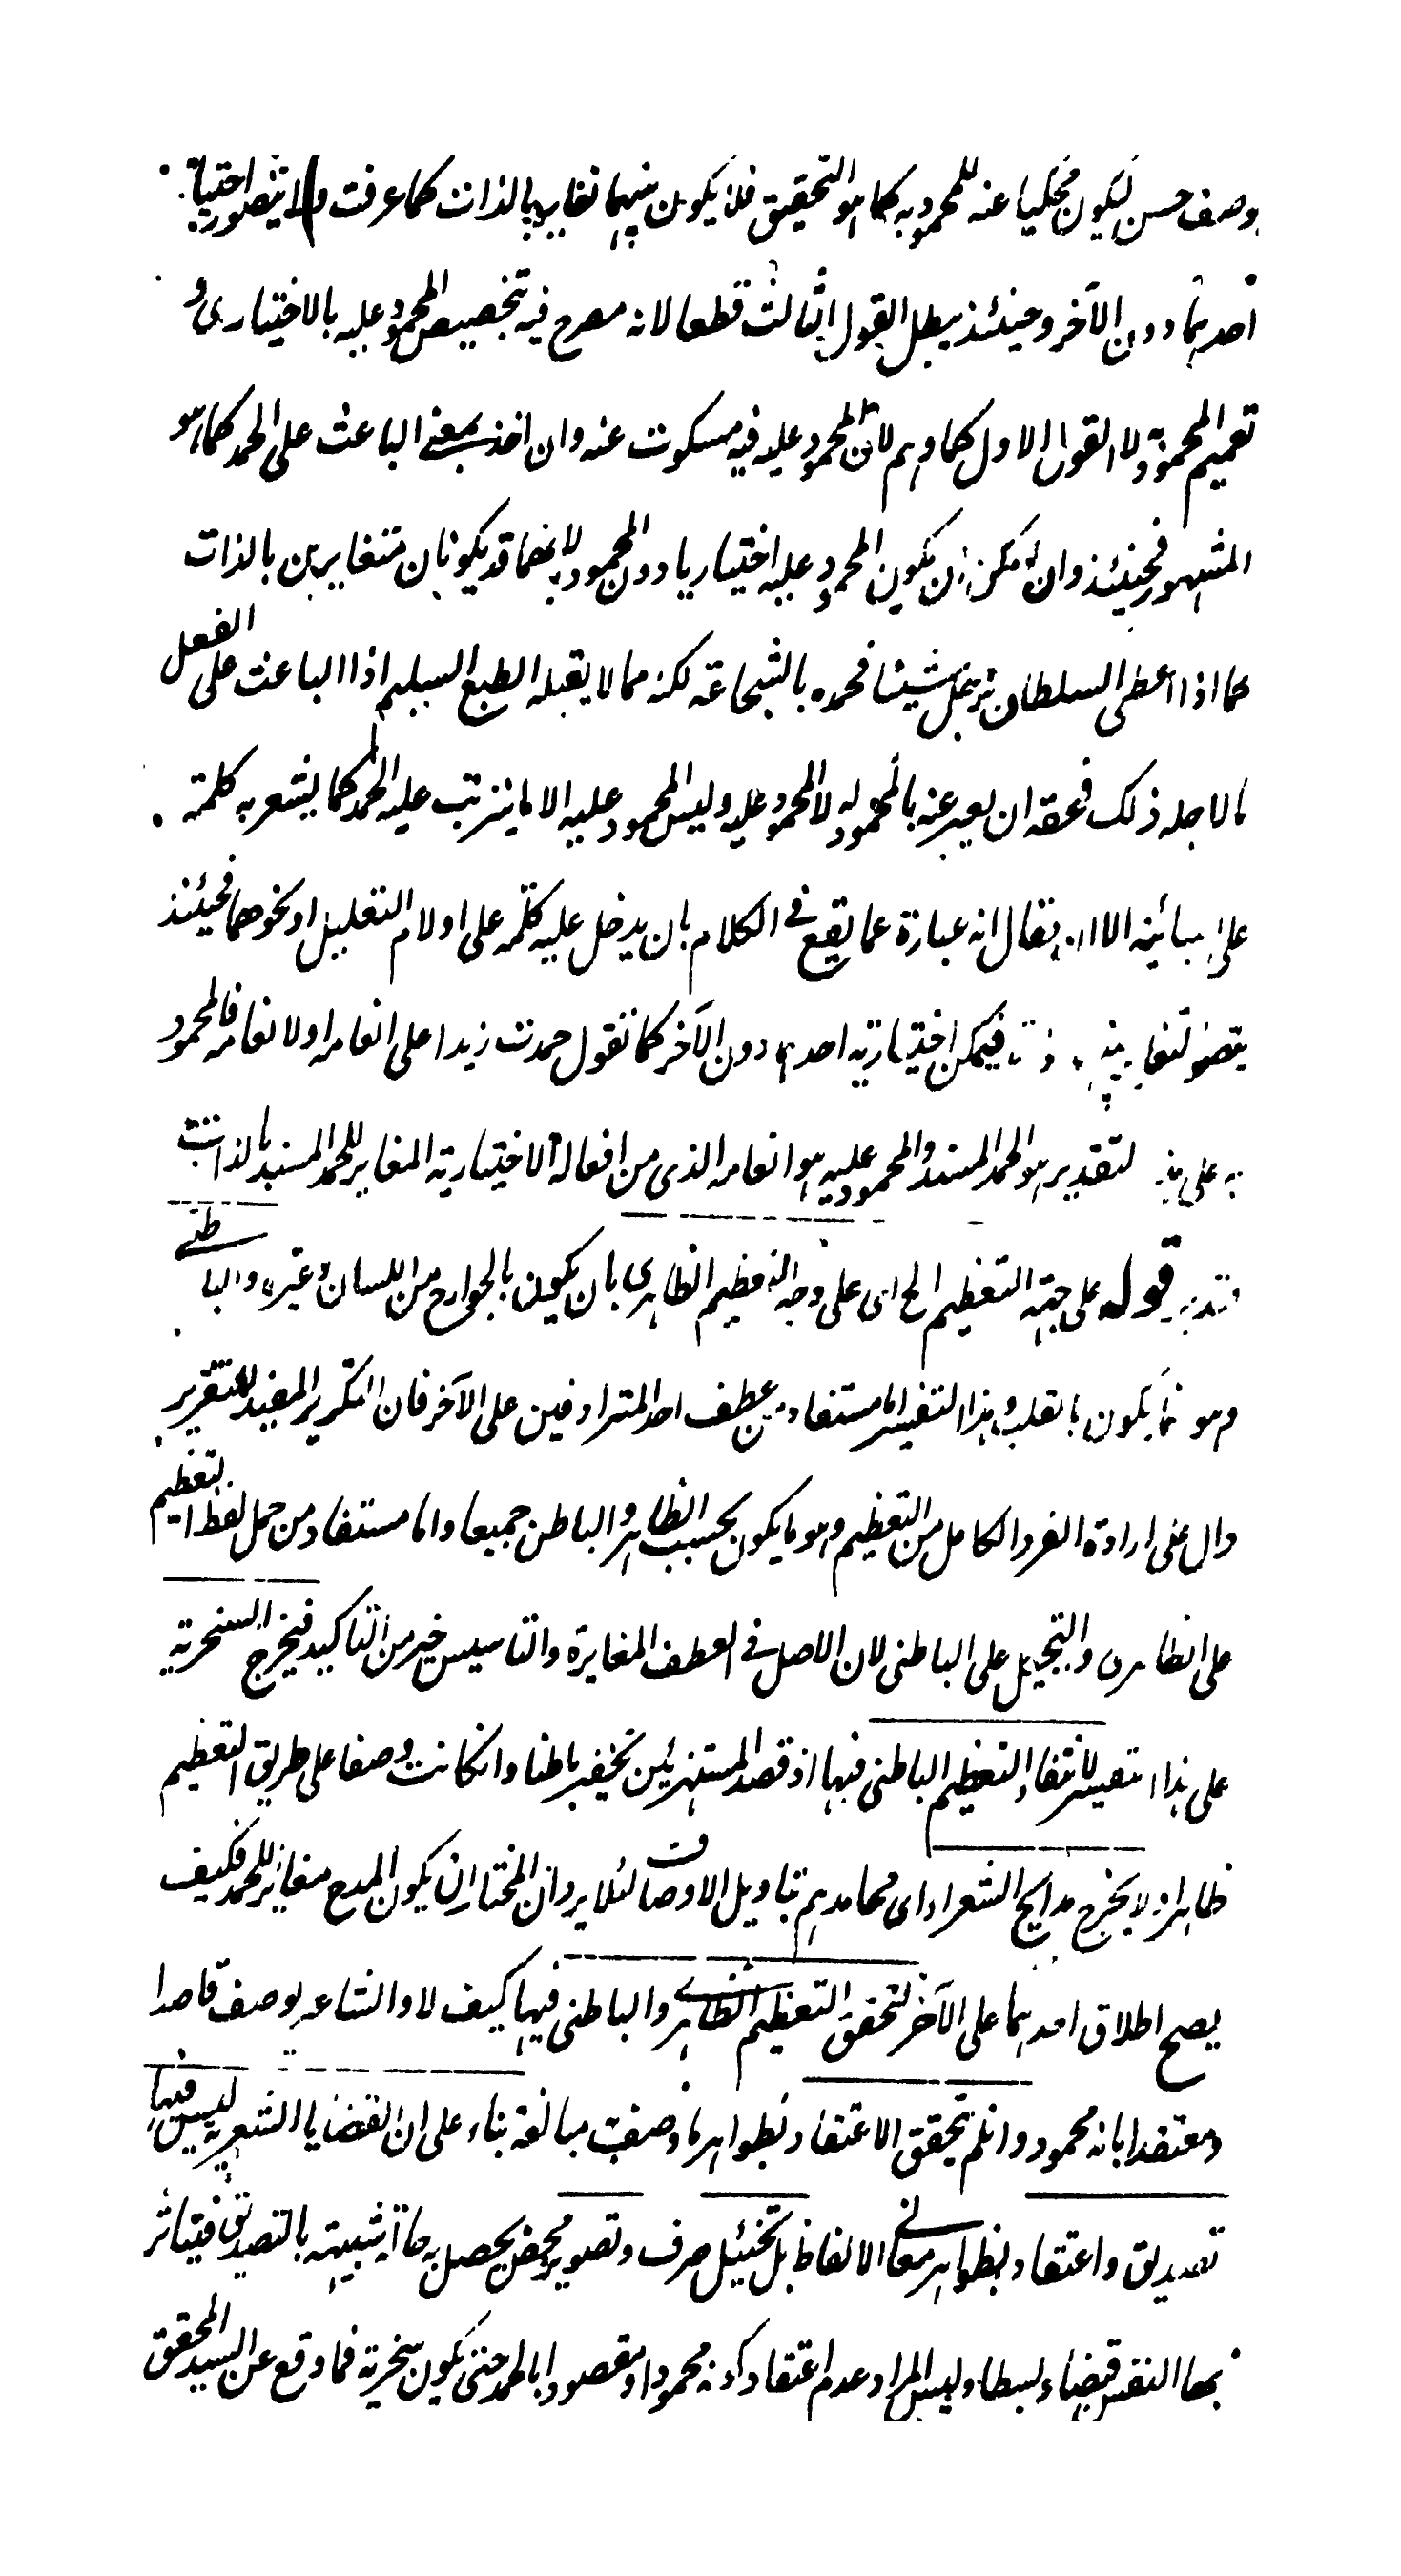 وصف حسن ليكون محكيا عنه للمحمود به كما هو التحقيق فلا يكون بينهما تغاير بالذات كما عرفت ولا يتصور اختيارية
احدهما دون الآخر وحينئذ يبطل القول الثالث قطعا لانه مصرح فيه تخصيص المحمود عليه بالاختياري و
تعميم المحمود به لا القول الاول كما وهم لان المحمود عليه فيه مسكوت عنه وان اخذ بمعنى الباعث على الحمد كما هو
المشهور فحينئذ وان امكن ان يكون المحمود عليه اختياريا دون المحمود به لانهما قد يكونان متغايرين بالذات
كما اذا اعطى السلطان رجلا شيئا فحمده بالشجاعة لكنه مما لا يقبله الطبع السليم اذا الباعث على الفعل
ما لاجله ذلك فحقه ان يعبر عنه بالمحمود له لا المحمود عليه وليس المحمود عليه الا ما يترتب عليه الحمد كما يشعر به كلمة
على البنائية الا ان يقال انه عبارة عما يقع في الكلام بان يدخل عليه كلمة على او لام التعليل او نحوهما فحينئذ
يتصور تغاير فيمكن اختيارية احدهما دون الآخر كما تقول حمدت زيدا على انعامه او لانعامه فالمحمود
به على هذا التقدير هو الحمد المسند والمحمود عليه هو انعامه الذي من افعاله الاختيارية المغاير للحمد المسند بالذات
فتدبر قوله على جهة التعظيم الخ اي على وجه التعظيم الظاهري بان يكون بالجوارح من اللسان وغيره والباطني
وهو ما يكون بالقلب وهذا التفسير اما مستفاد من عطف احد المترادفين على الآخر فان التكرير المفيد للتقرير
دال على ارادة الفرد الكامل من التعظيم وهو ما يكون بحسب الظاهر والباطن جميعا واما مستفاد من حمل لفظ التعظيم
على الظاهري والتبجيل على الباطني لان الاصل في العطف المغايرة والتاسيس خير من التاكيد فيخرج السخرية
على هذا التفسير لانتفاء التعظيم الباطني فيها اذ قصد المستهزئين تحقير باطنا وانكانت وصفا على طريق التعظيم
ظاهرا ولا يخرج مدايح الشعراء اي محامدهم بتاويل الاوصاف لئلا يرد ان المختار ان يكون المدح مغايرا للحمد فكيف
يصح اطلاق احدهما على الآخر لتحقق التعظيم الظاهري والباطني فيها كيف لا والشاعر يوصف قاصدا
ومعتقدا بانه محمود وانلم يتحقق الاعتقاد بظواهر ما وصف به مبالغة بناء على ان القضايا الشعرية ليس فيها
تصديق واعتقاد بظواهر معاني الالفاظ بل تخييل صرف وتصوير محض يحصل به حالة شبيهة بالتصديق فيتاثر
بها النفس قبضا وبسطا وليس المراد عدم اعتقاد كونه محمودا ومقصودا بالحمد حتى يكون سخرية فما وقع عن السيد المحقق